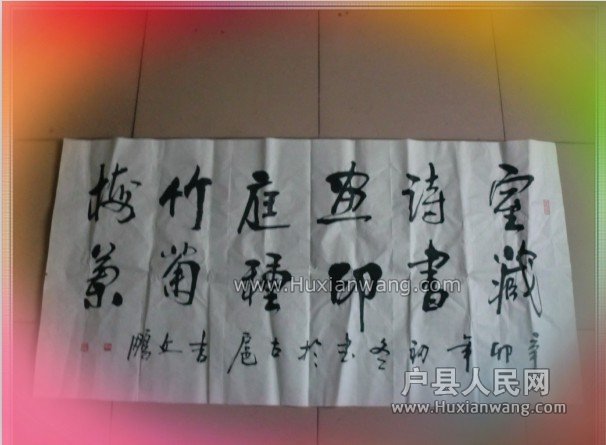 室藏
詩書
画印
庭種
竹菊
梅蘭
辛卯年初冬书於古扈
www.Huxianwang.com
户县人民网
www.Huxianwang.com